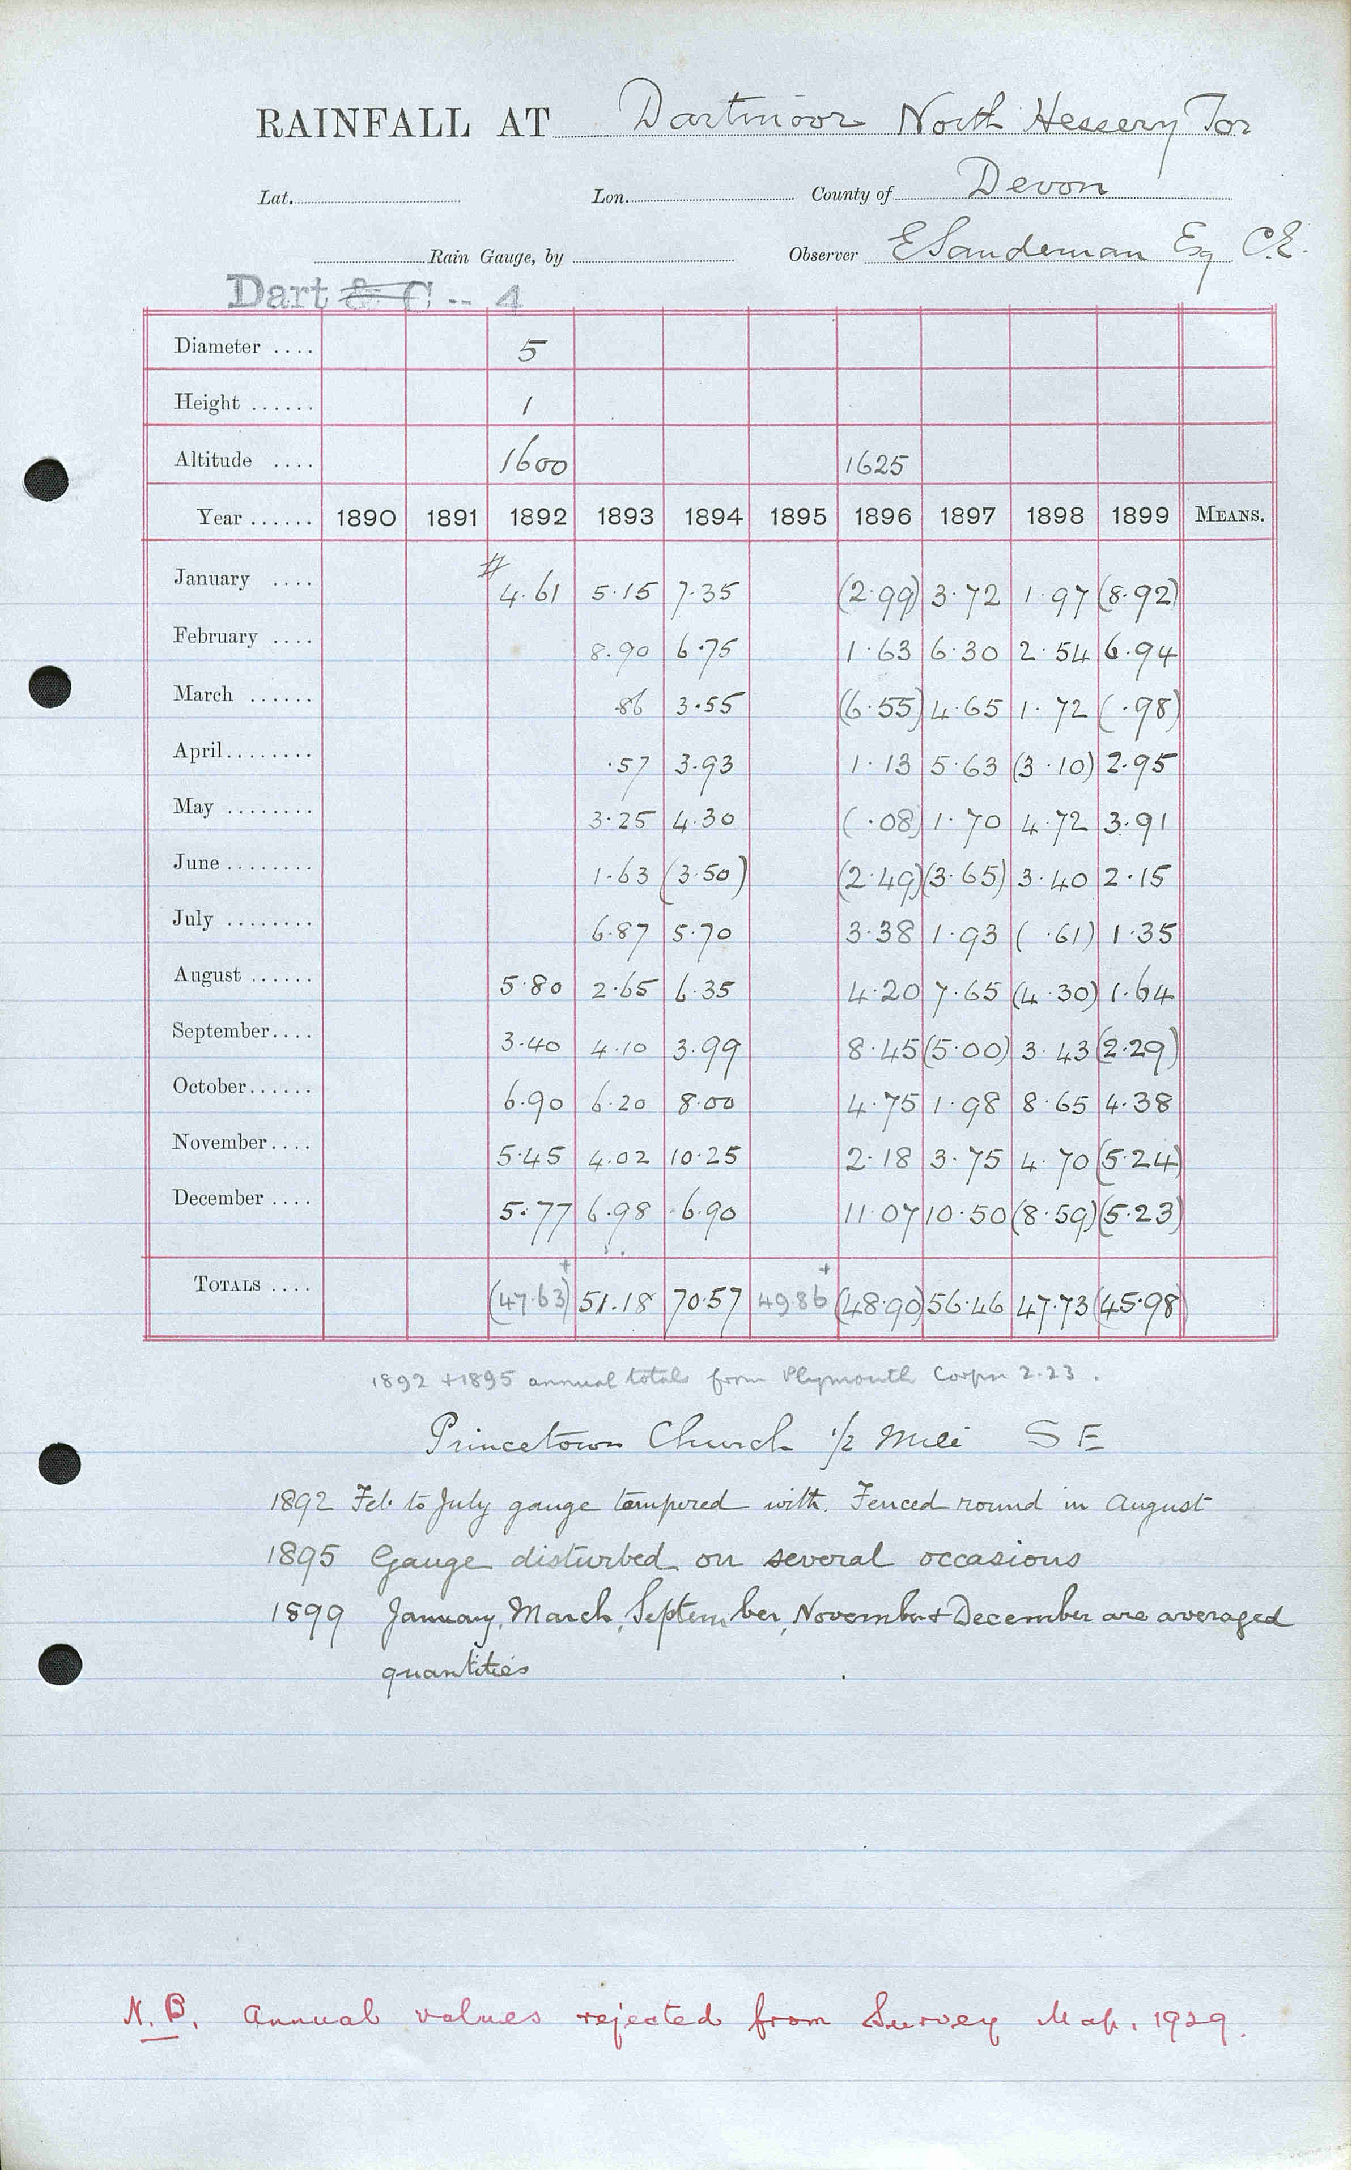 RAINFALL AT Dartmoor North Hessery Tor
Lat. Lon. County of Devon
Rain Gauge, by Observer E Sandeman Esq C.E.
Dart & C -- 4
Diameter .... 5
Height ...... 1
Altitude .... 1600 1625
Year ...... 1890 1891 1892 1893 1894 1895 1896 1897 1898 1899 MEANS.
January .... # 4.61 5.15 7.35 (2.99) 3.72 1.97 (8.92)
February .... 8.90 6.75 1.63 6.30 2.54 6.94
March ...... .86 3.55 (6.55) 4.65 1.72 (.98)
April ........ .57 3.93 1.13 5.63 (3.10) 2.95
May ........ 3.25 4.30 (.08) 1.70 4.72 3.91
June ........ 1.63 (3.50) (2.49) (3.65) 3.40 2.15
July ........ 6.87 5.70 3.38 1.93 (.61) 1.35
August ...... 5.80 2.65 6.35 4.20 7.65 (4.30) 1.64
September .... 3.40 4.10 3.99 8.45 (5.00) 3.43 (2.29)
October ...... 6.90 6.20 8.00 4.75 1.98 8.65 4.38
November .... 5.45 4.02 10.25 2.18 3.75 4.70 (5.24)
December .... 5.77 6.98 6.90 11.07 10.50 (8.59) (5.23)
TOTALS .... (47.63)+ 51.18 70.57 49.86+ (48.90) 56.46 47.73 (45.98)
1892 + 1895 annual totals from Plymouth Corpn 2.23.
Princetown Church 1/2 Mile S E
1892 Feb. to July gauge tampered with. Fenced round in August
1895 Gauge disturbed on several occasions
1899 January, March, September, November + December are averaged
quantities
N.B. Annual values rejected from Survey Map. 1929.